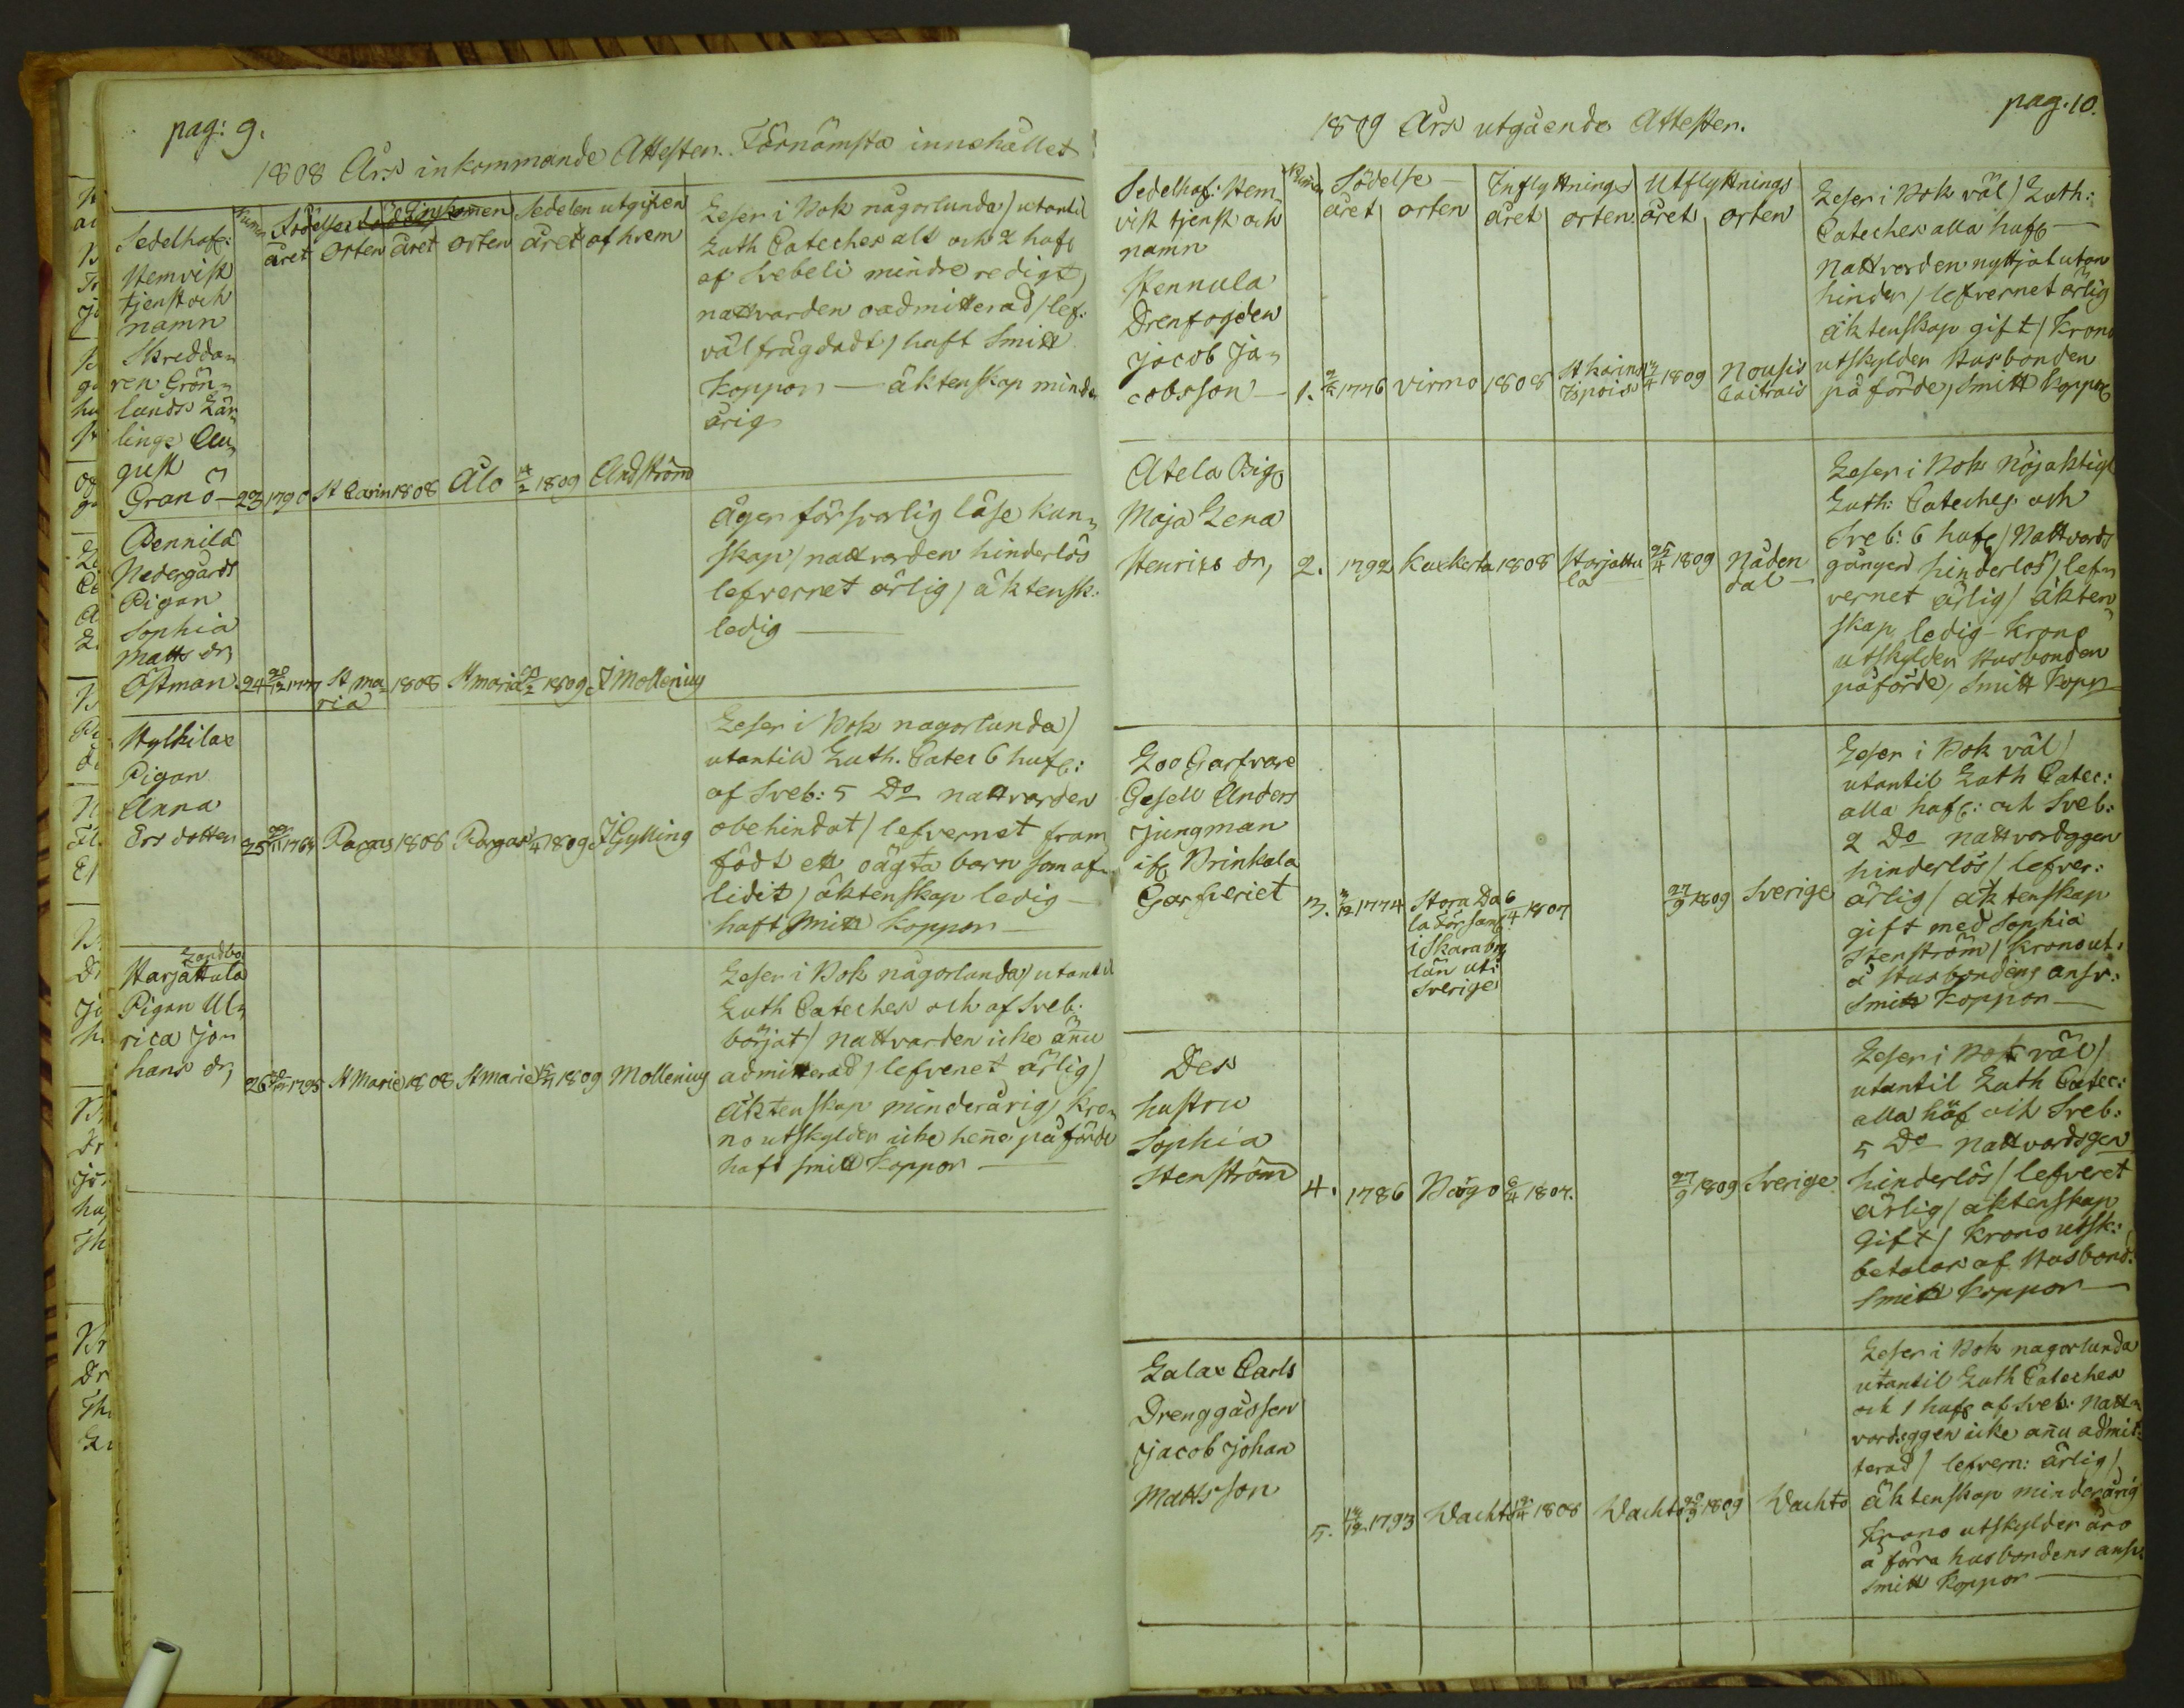 pag: 9.
1808 Års inkommande Attester. Förnämsta innehållet
Sedelhaf:
Hemvist
tjenst och
namn
Numer
Födelse
året orten
Inkommen
året orten
Sedelen utgifven
året af hvem
Skredda=
ren Grön=
lunds Lär=
linge Au=
gust
Granö — 23 1790 St Carin 1808 Åbo 14/2 1809 Andström
Leser i Bok någorlunda/ utantil
Luth Cateches alt och 2 huf
af Svebeli mindre redigt,
nattvarden oadmitterad/ lef:
väl frägdadt/ haft Smitt
koppor — äktenskap minder
årig
Pennila
Nedergårds
Pigan
Sophia
Matts dr
Östman. 24 1777 St Ma=
ria 1808 St Maria 1809 J Mollenius
Äger försvarlig läse kun=
skap/ nattvarden hinderlös
lefvernet ärlig/ äktensk:
ledig —
Hylkilax
Pigan
Anna
Ers dotter 25 1764 Pargas 1808 Pargas 1809 J Gylling
Leser i Bok nagorlunda/
utantill Luth. Catec 6 huf:
af Sveb: 5 Do nattvarden
obehindat/ lefvernet fram
födt ett oägta barn som af=
lidit/ äktenskap ledig —
haft Smitt koppor —
Landbo
Harjattula
Pigan Ul=
rica Jo=
hans dr, 26 1795 St Marie 1808 St Marie 1809 Mollenius
Leser i Bok någorlunda/ utantil
Luth Cateches och af Sveb:
börjat/ Nattvarden icke ännu
admitterad/ lefvenet ärlig/
Äktenskap minderårig/ kro=
no utskylder icke henne påförde
haft smitt koppor —
pag. 10.
1809 Års utgående Attester.
Sedelhaf: Hem=
vist tjenst och
namn
Numer
Födelse
året orten
Inflyttnings
året orten
Utflyttnings
året orten
Hennula
Drenfogden
Jacob Ja=
cobsson — 1. 1776 Virmo 1808 St Karins
Ispois 1809 Nousis
Kaitrais
Leser i Bok väl/ Luth:
Cateches alla huf —
Nattvarden nyttjat utan
hinder/ lefvernet ärlig
äktenskap gift/ krono
utskylder Husbonden
på förde, Smitt koppor
Atela Pig
Maja Lena
Henrics dr, 2. 1792 Kuxkerta 1808 Harjattu
la 25/4 1809 Nåden
dal —
Leser i Bok Nöjaktigt
Luth: Cateches och
Sveb: 6 huf/ Nattvards
gången hinderlös/ lef=
vernet ärlig/ äkten=
skap ledig — Krono
utskylder Husbonden
påförde, Smitt kopp
Loo Garfvare
Gesell Anders
Jungman
if Brinkala
Garfveriet 3. 1774 Stora Da
la församl
i Skarabrg
län uti
Sverige 6/4 1807 27/9 1809 Sverige
Leser i Bok väl/
utantil Luth Catec:
alla huf: och Sveb:
2 Do nattvardggen
hinderlös/ lefver:
ärlig/ äktenskap
gift med Sophia
Stenström/ Kronout:
å Husbondens ansv:
Smitt koppor —
Des
hustru
Sophia
Stenström 4. 1786 6/4 1807. 27/9 1809 Sverige
Leser i Bok väl/
utantil Luth Catec:
alla huf och Sveb:
5 Do Nattvardsgen
hinderlös/ lefveret
ärlig/ äktenskap
Gift/ Krono utsk:
betalas af Husbond:
Smitt koppor —
Lalax Carls
Drenggåssen
Jacob Johan
Mattsson 5. 1793 Wachto 1808 Wachto 1809 Wachto
Leser i Bok nagorlunda
utantil Luth Cateches
och 1 huf af Sveb: Natt=
vardsggen icke annu admit=
terad/ lefvern: ärlig/
äktenskap minderårig
Krono utskylder äro
å förra husbondens ansv:
Smitt koppor —